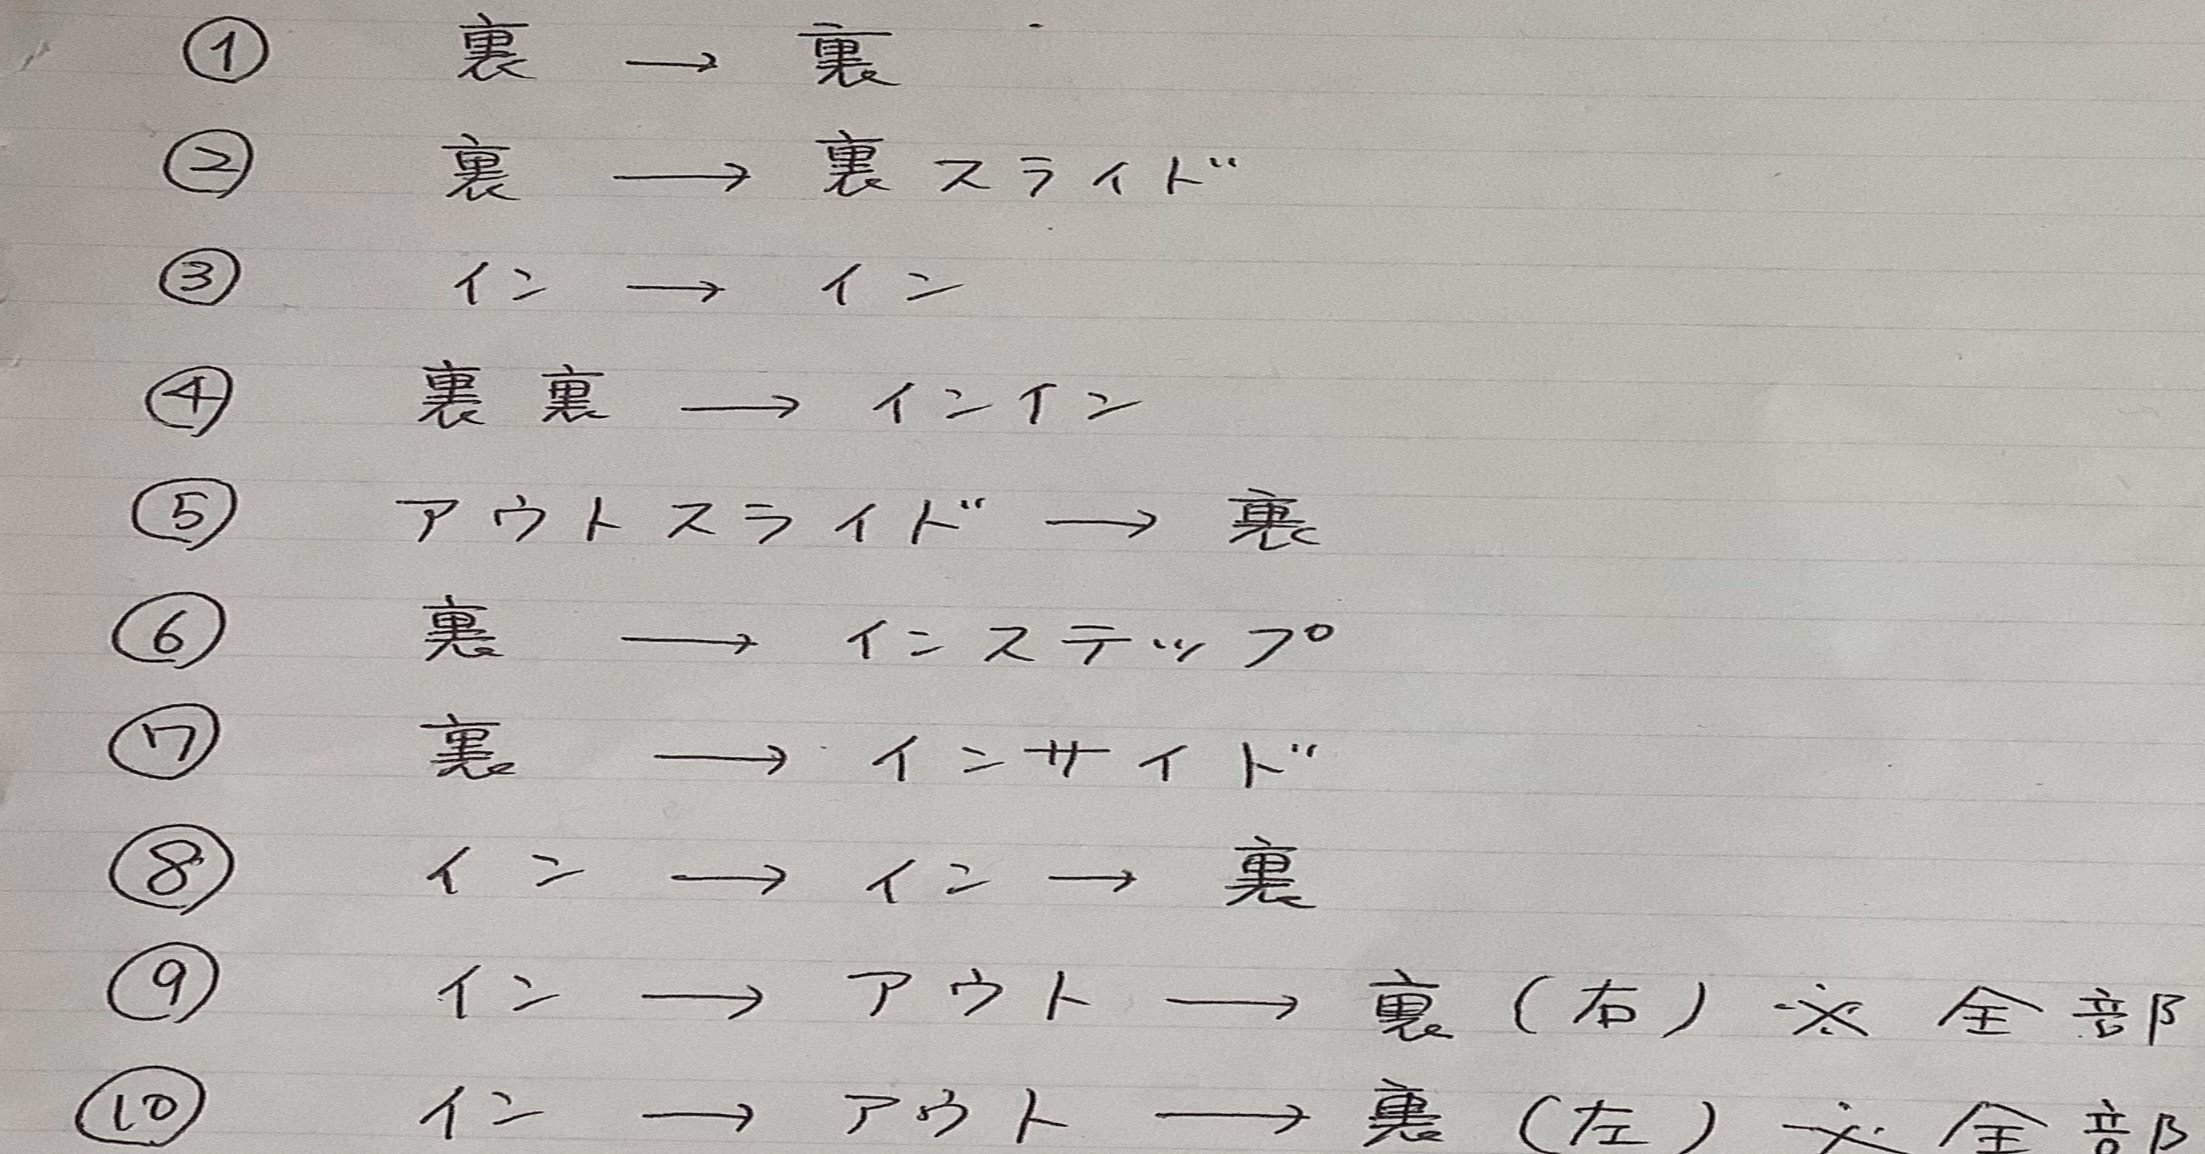 ① 裏 → 裏
② 裏 → 裏スライド
③ イン → イン
④ 裏裏 → インイン
⑤ アウトスライド → 裏
⑥ 裏 → インステップ
⑦ 裏 → インサイド
⑧ イン → イン → 裏
⑨ イン → アウト → 裏(右) ※ 全部
⑩ イン → アウト → 裏(左) ※ 全部